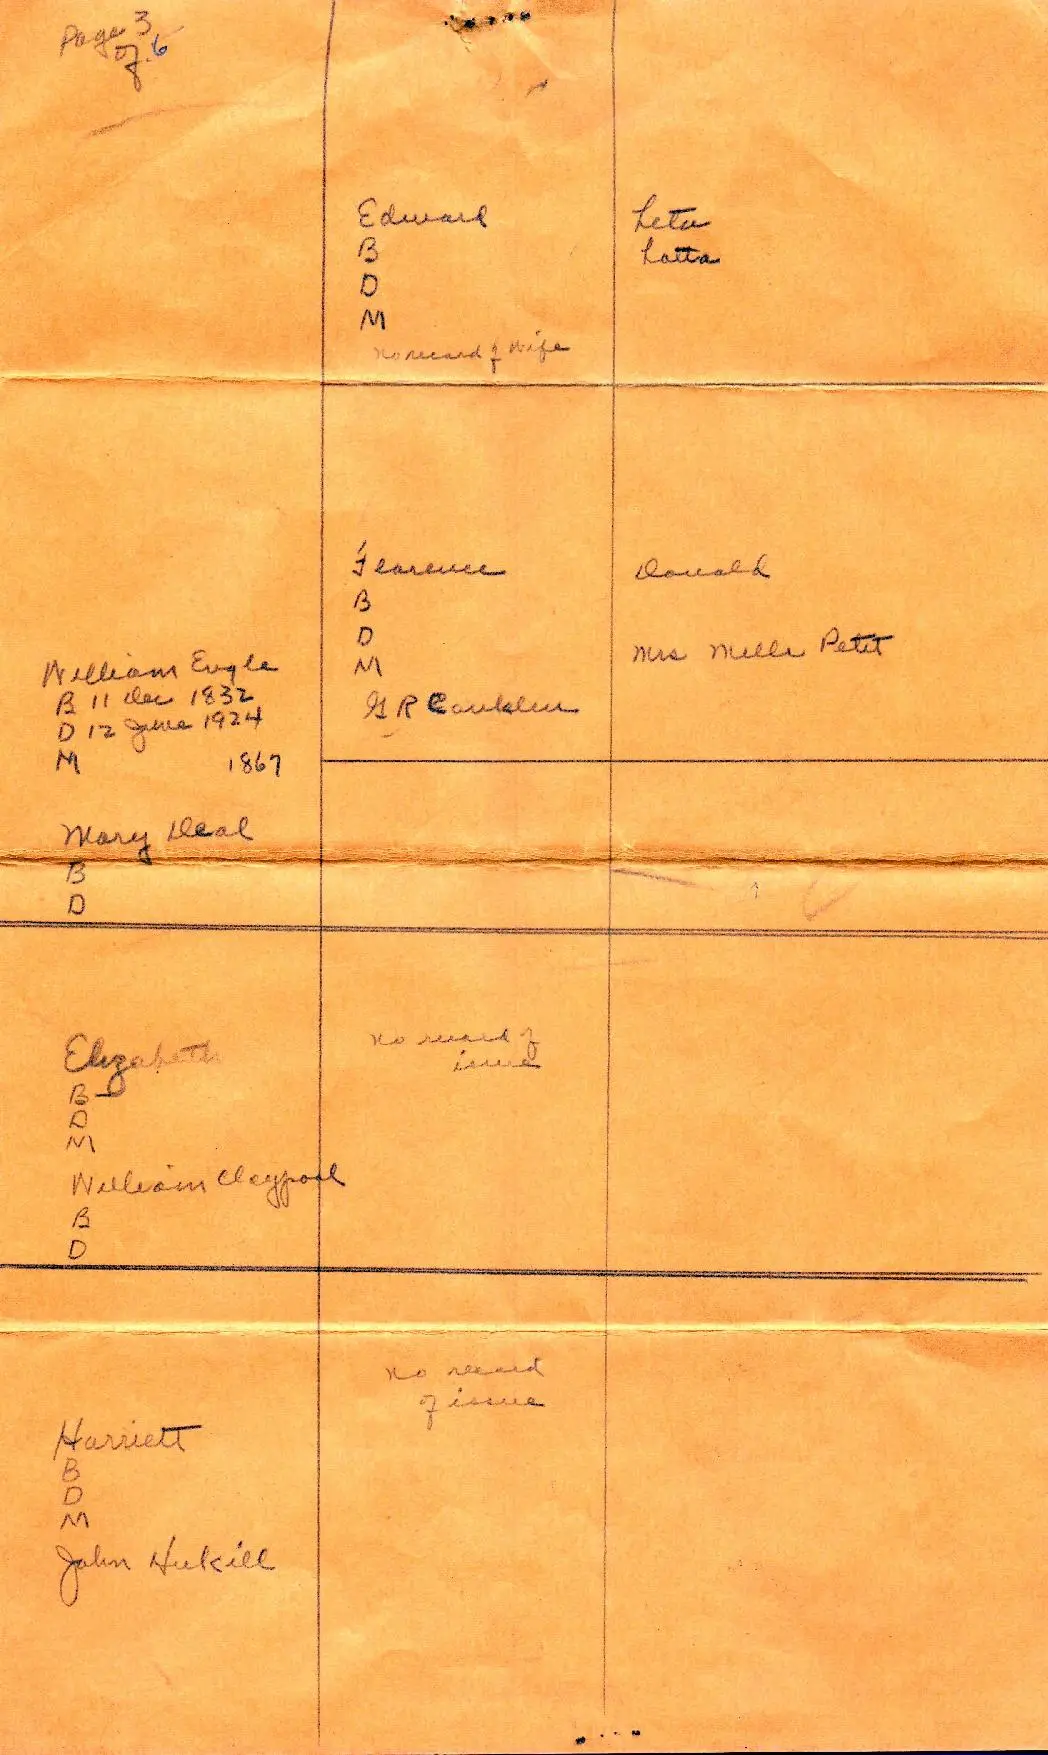 Page 3
of 6
Edward
B
D
M
no record of Wife
Leta
Lotta
Florence
B
D
M
G R Conklin
Donald
Mrs Mills Petit
William Engle
B 11 Dec 1832
D 12 June 1924
M 1867
Mary Deal
B
D
Elizabeth
B
D
M
William Claypool
B
D
no record of
issue
Harriett
B
D
M
John Hukill
no record
of issue